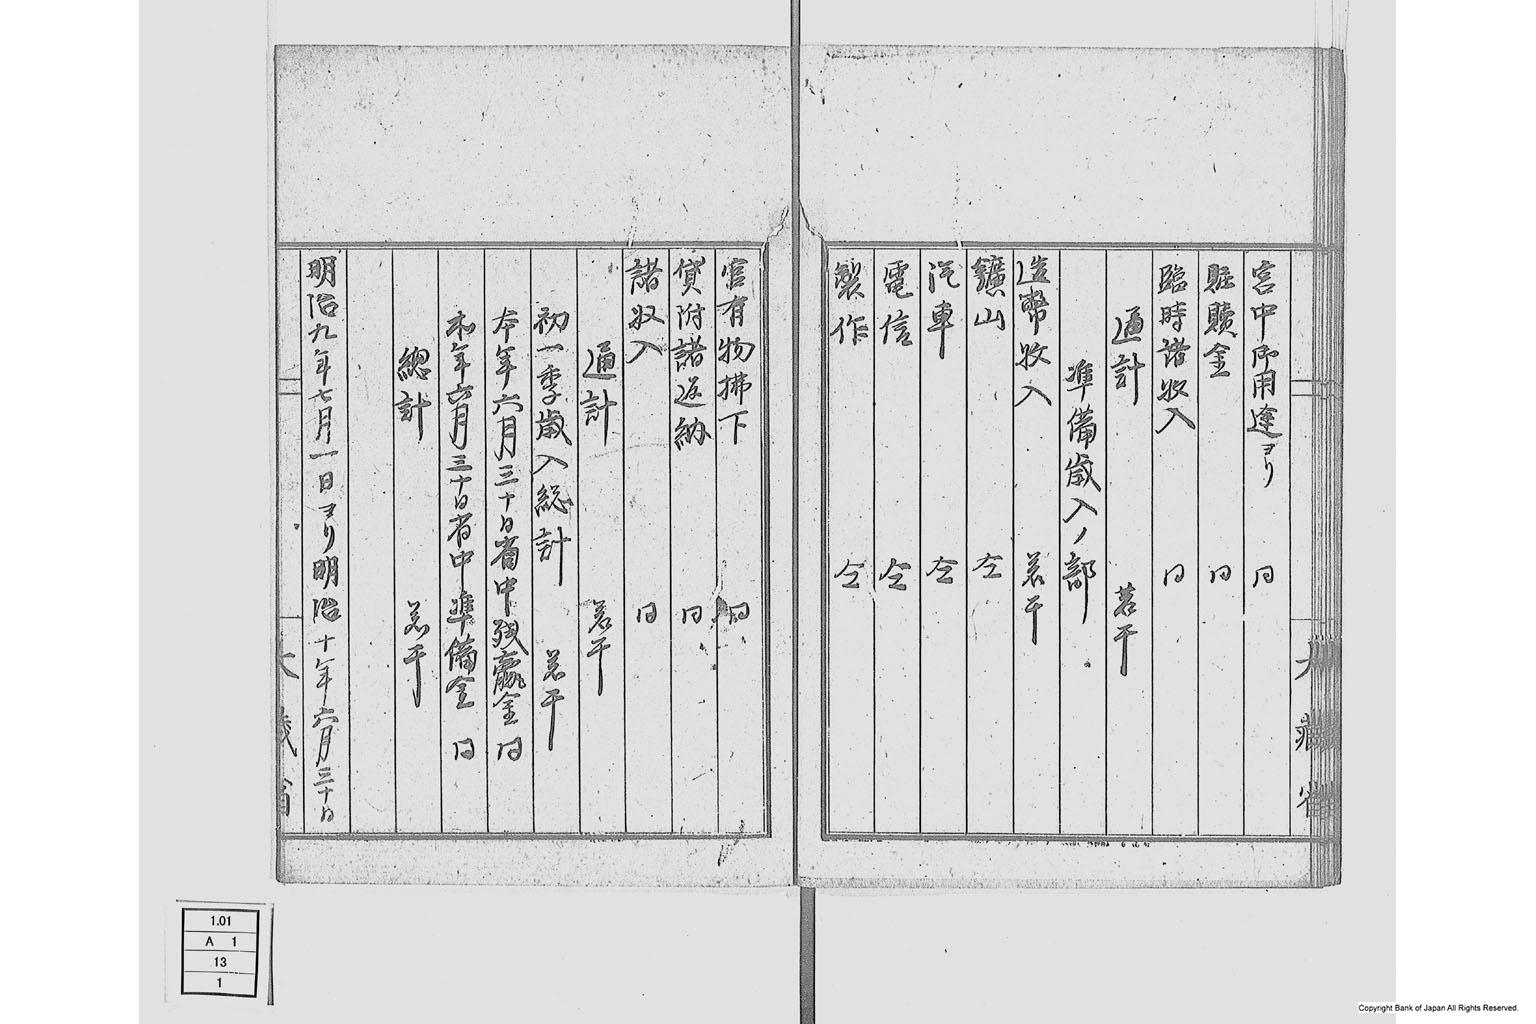 宮中御用達ヨリ 同
贓贖金 同
臨時諸収入 同
通計 若干
準備歳入ノ部
造幣収入 若干
鑛山 仝
汽車 仝
電信 仝
製作 仝
官有物拂下 同
貸附諸返納 同
諸収入 同
通計 若干
初一季歳入総計 若干
本年六月三十日省中残贏金 同
本年六月三十日省中準備金 同
總計 若干
明治九年七月一日ヨリ明治十年六月三十日
大藏省
1.01
A 1
13
1
Copyright Bank of Japan All Rights Reserved.